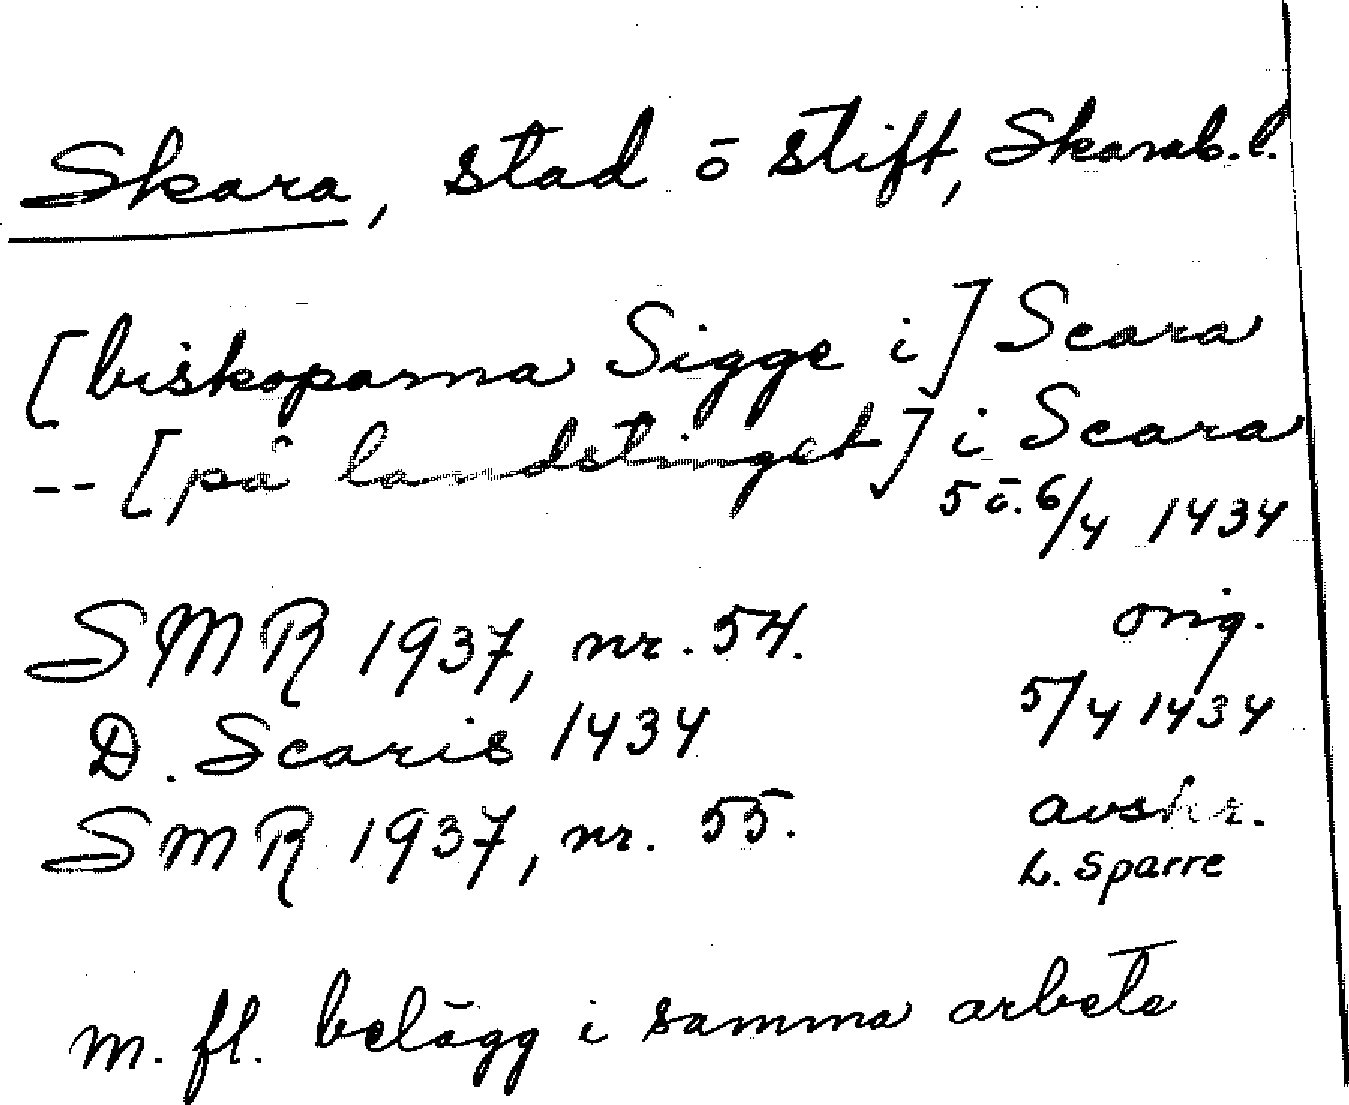 Skara, stad ō stift, Skarab. l.
[biskoparna Sigge i] Scara
-- [på landstinget] i Scara
5 ō. 6/4 1434
SMR 1937, nr. 54. orig.
D. Scaris 1434 5/4 1434
SMR 1937, nr. 55. avskr.
L. Sparre
m. fl. belägg i samma arbete